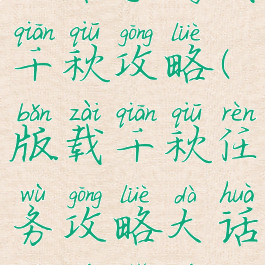 qiān qiū gōng lüè
千秋攻略(
bǎn zài qiān qiū rèn
版载千秋任
wù gōng lüè dà huà
务攻略大话